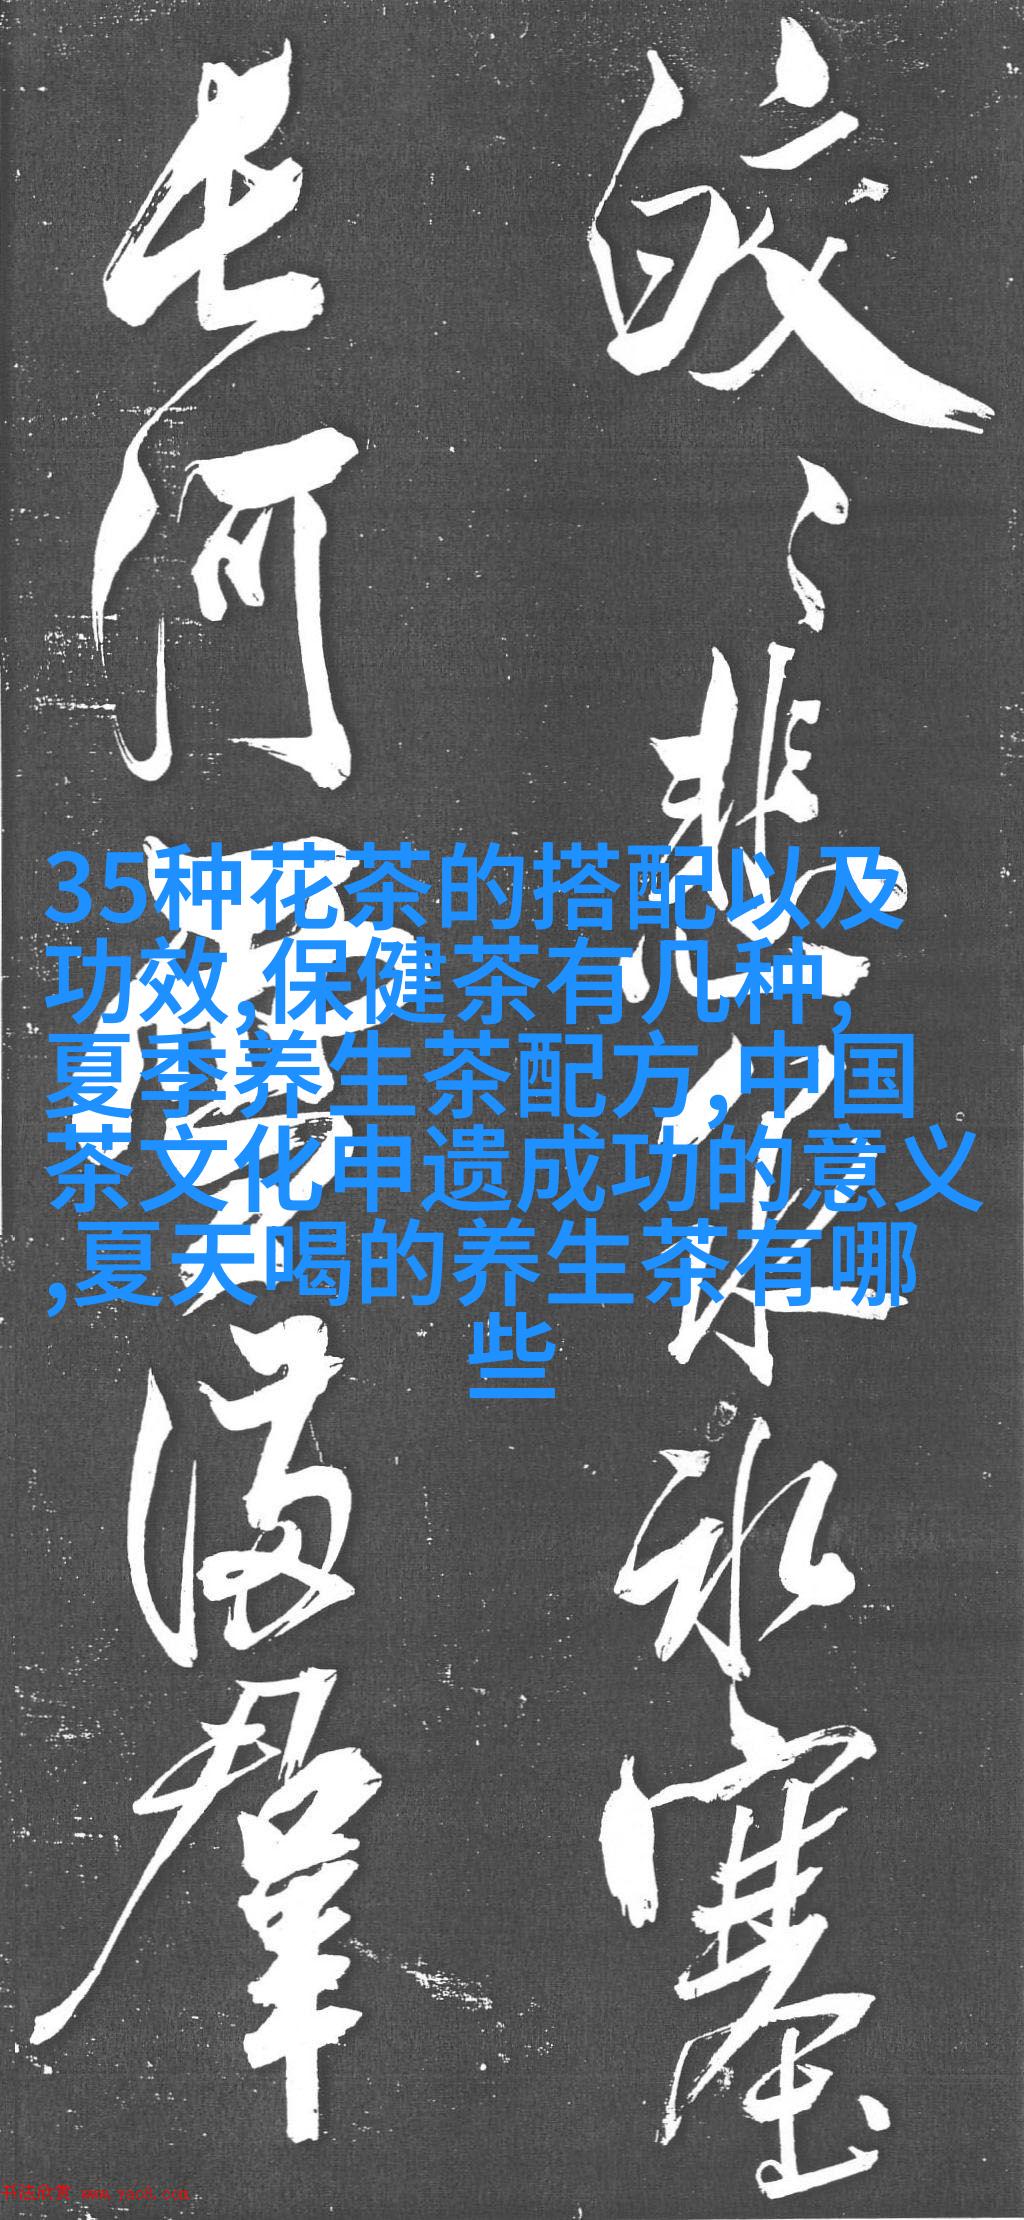 皎々悲泉氷塞
長河雪滿羣
35种花茶的搭配以及
功效,保健茶有几种,
夏季养生茶配方,中国
茶文化申遗成功的意义
,夏天喝的养生茶有哪
些
书法欣赏 www.yac8.com